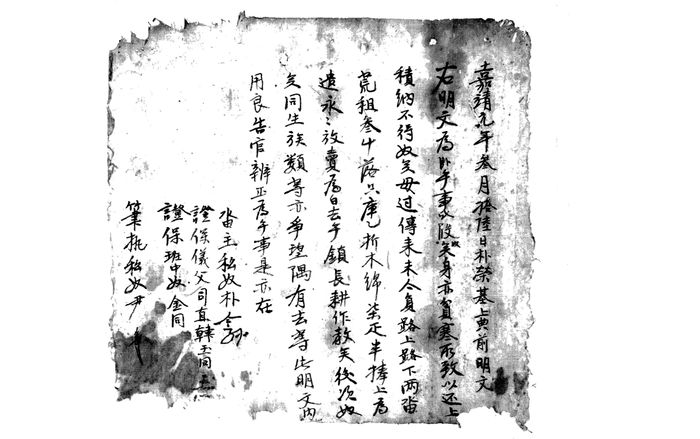 嘉靖元年叁月拾陸日朴榮基前明文
右明文爲臥乎事段矣身亦貧寒所致以還上
積納不得奴矣母過傳来 路上路下兩畓
荒租叁斗落只庫乙折木綿 疋半捧上爲
遣永〻放賣爲白去乎鎭長耕作教矣後次奴
矣同生族類等亦爭望隅有去等此明文內
用良告官辨正爲乎事是亦在
畓主私奴朴
證保 司直韓玉同
證保 班中奴金同
筆執私奴尹